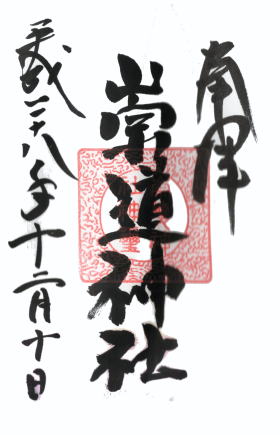 奉拝
崇道神社
平成二十八年十二月十日